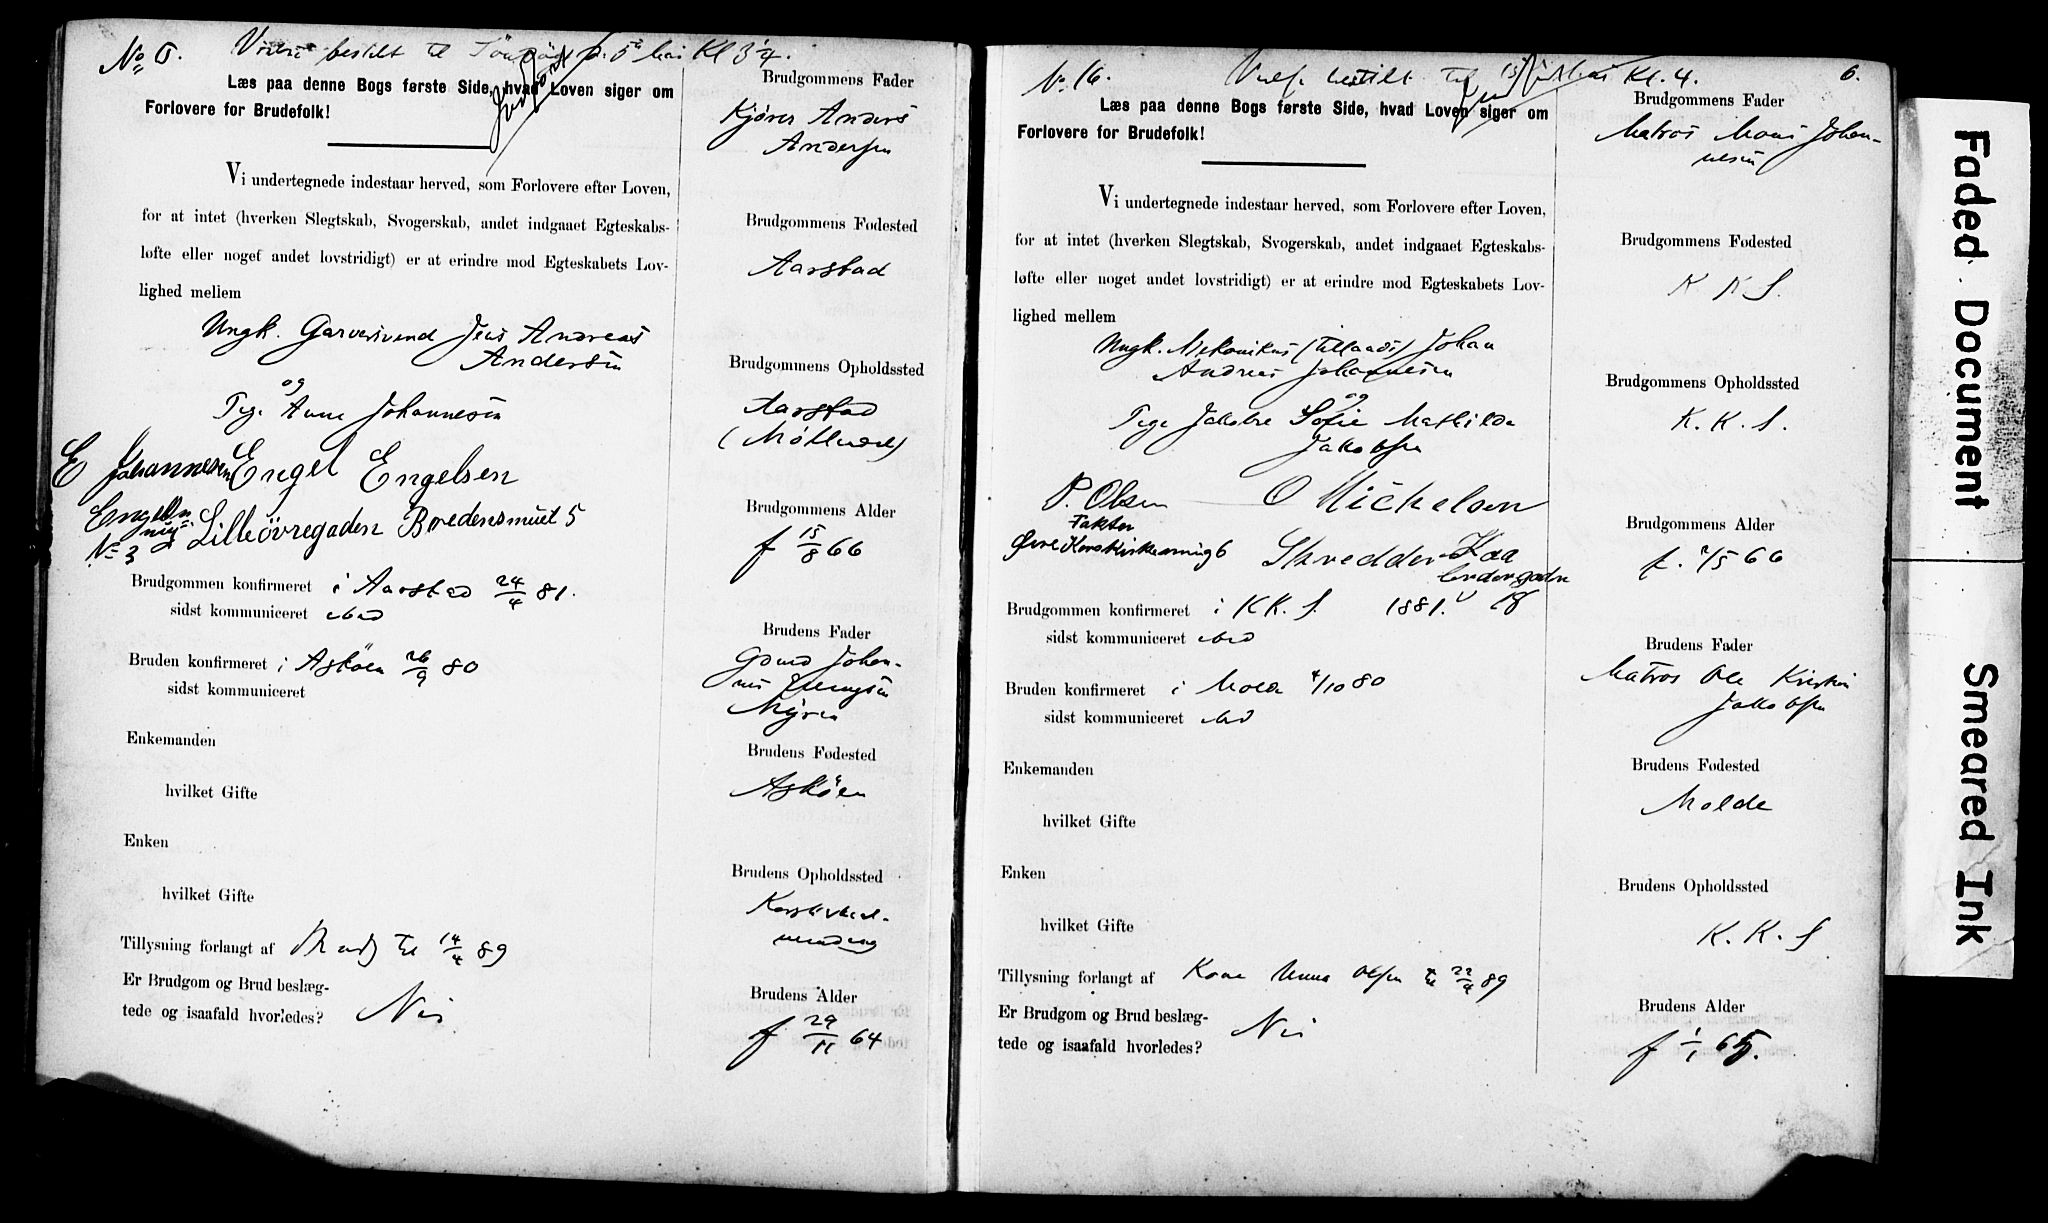 No 0. bestilt til Kl 3¼.
Læs paa denne Bogs første Side, hvad Loven siger om
Forlovere for Brudefolk!
Vi undertegnede indestaar herved, som Forlovere efter Loven,
for at intet (hverken Slegtskab, Svogerskab, andet indgaaet Egteskabs-
løfte eller noget andet lovstridigt) er at erindre mod Egteskabets Lov-
lighed mellem
Ungk. Garversvend Jens Andreas
Andersen
og
Pige Anne Johannesen
E Johannesen Engel Engelsen
No 3 Lilleövregaden Bredensmuet 5
Brudgommen konfirmeret i Aarstad 24/4 81.
sidst kommuniceret
Bruden konfirmeret i Asköen 26/9 80
sidst kommuniceret
Enkemanden
hvilket Gifte
Enken
hvilket Gifte
Tillysning forlangt af til 14/4 89
Er Brudgom og Brud beslæg-
tede og isaafald hvorledes? Nei
Brudgommens Fader
Kjører Anders
Andersen
Brudgommens Fødested
Aarstad
Brudgommens Opholdssted
Aarstad
Brudgommens Alder
f 15/8 66
Brudens Fader
Gdmd Johan-
nes
Myren
Brudens Fødested
Asköen
Brudens Opholdssted
Brudens Alder
f 29/11 64
No. 16. bestilt til Kl. 4. 6.
Læs paa denne Bogs første Side, hvad Loven siger om
Forlovere for Brudefolk!
Vi undertegnede indestaar herved, som Forlovere efter Loven,
for at intet (hverken Slegtskab, Svogerskab, andet indgaaet Egteskabs-
løfte eller noget andet lovstridigt) er at erindre mod Egteskabets Lov-
lighed mellem
Ungk. Mekanikus Johan
Andreas Johannesen
og
Pige Sofie Mathilde
Jakobsen
P. Olsen O Michelsen
Faktor
Øvre Korskirkealmng 6 Skredder
18
Brudgommen konfirmeret i K K. S. 1881.
sidst kommuniceret
Bruden konfirmeret i Molde /10 80
sidst kommuniceret
Enkemanden
hvilket Gifte
Enken
hvilket Gifte
Tillysning forlangt af Kone Olsen til 22/4 89
Er Brudgom og Brud beslæg-
tede og isaafald hvorledes? Nei
Brudgommens Fader
Matros Mons Johan-
nesen
Brudgommens Fødested
K K S.
Brudgommens Opholdssted
K. K. S.
Brudgommens Alder
f. /5 66
Brudens Fader
Matros Ole Kristian
Jakobsen
Brudens Fødested
Molde
Brudens Opholdssted
K. K. S
Brudens Alder
f 1/1 65.
Faded Document
Smeared Ink